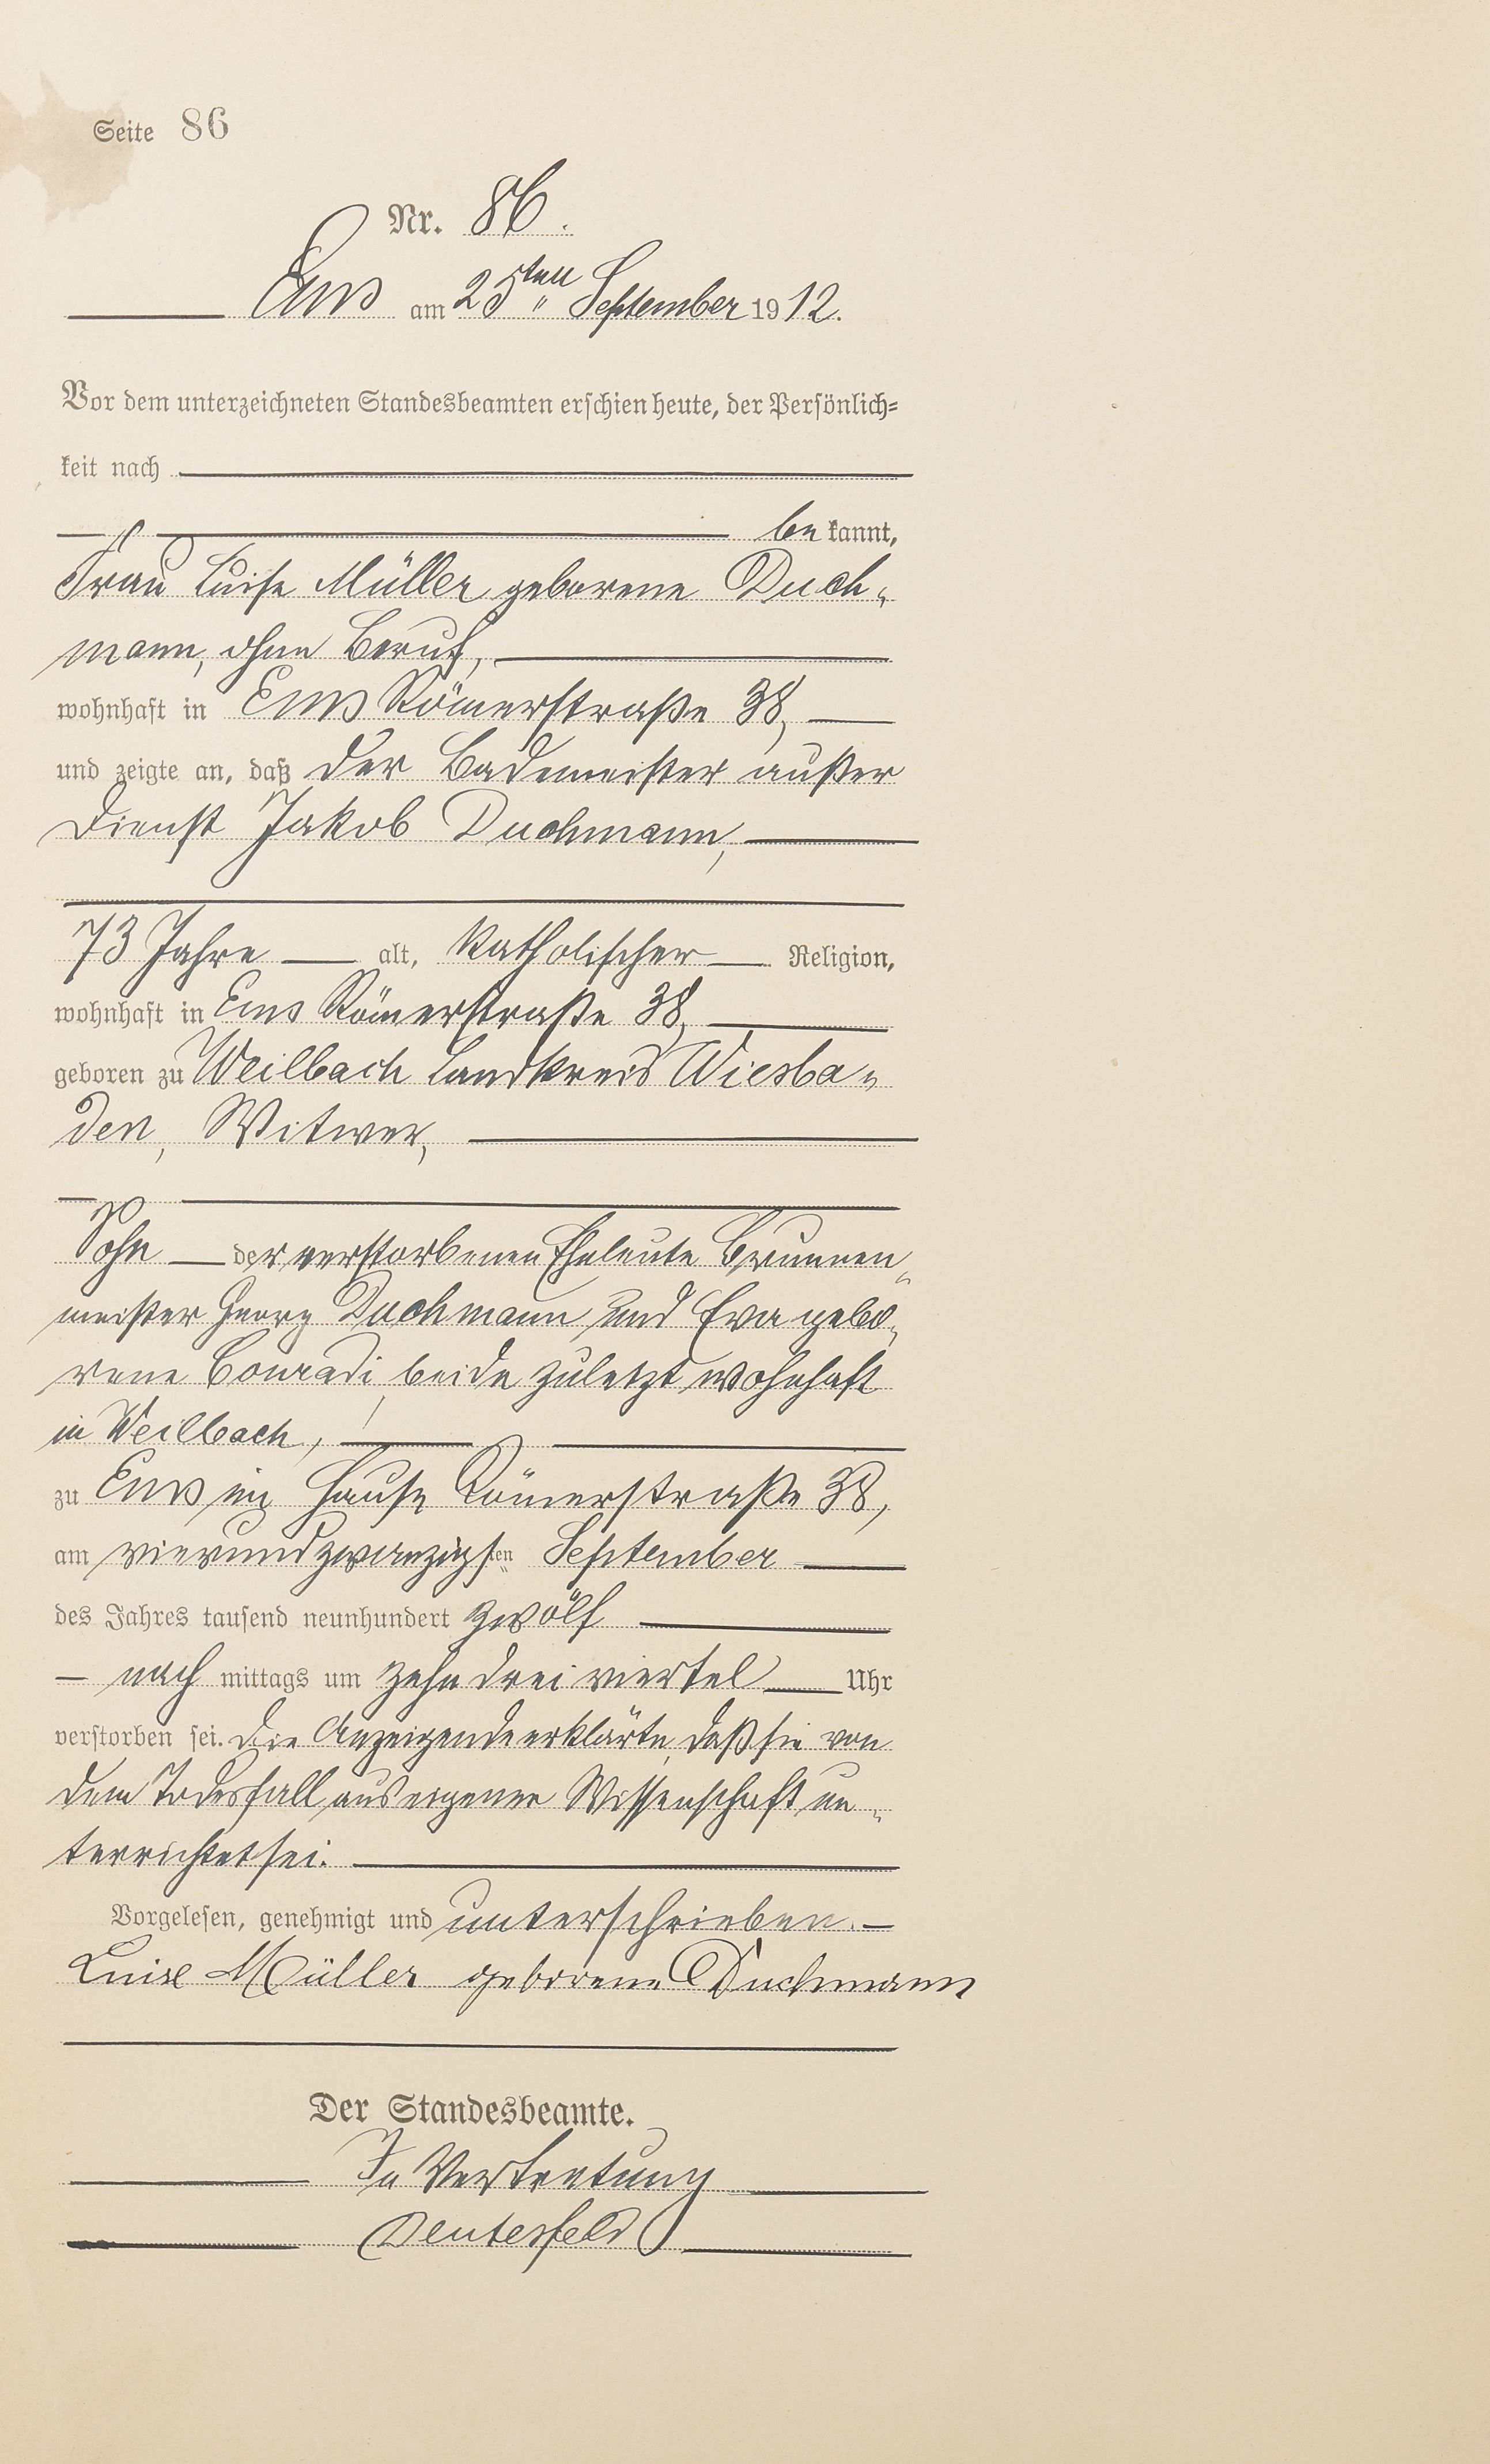 Seite 86
Nr. 86.
Ems am 25ten September 1912.
Vor dem unterzeichneten Standesbeamten erschien heute, der Persönlich=
keit nach
be kannt,
Frau Luise Müller geborene Duch„
mann, ohne Beruf,
wohnhaft in Ems Römerstraße 38,
und zeigte an, daß der Bademeister außer
Dienst Jakob Duchmann,
73 Jahre alt, katholischer Religion,
wohnhaft in Ems Römerstraße 38,
geboren zu Weilbach Landkreis Wiesba„
den, Witwer,
Sohn der verstorbenen Eheleute Brunnen„
meister Georg Duchmann und Eva gebo„
rene Conradi, beide zuletzt wohnhaft
in Weilbach,
zu Ems im Hause Römerstraße 38,
am vierundzwanzigsten September
des Jahres tausend neunhundert zwölf
nach mittags um zehn drei viertel Uhr
verstorben sei. Die Anzeigende erklärte, daß sie von
dem Todesfall aus eigener Wissenschaft un„
terrichtet sei.
Vorgelesen, genehmigt und unterschrieben.
Luise Müller geborene Duchmann
Der Standesbeamte.
In Vertretung